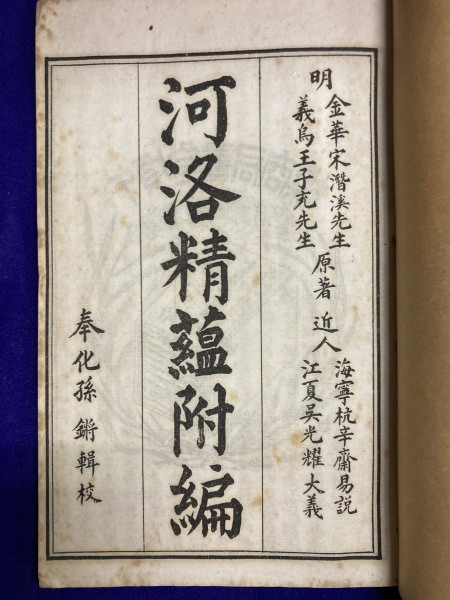 明
金華宋潛溪先生
義烏王子充先生
原著
近人
海寧杭辛齋易説
江夏吳光耀大義
河洛精蘊附編
奉化孫鏘輯校